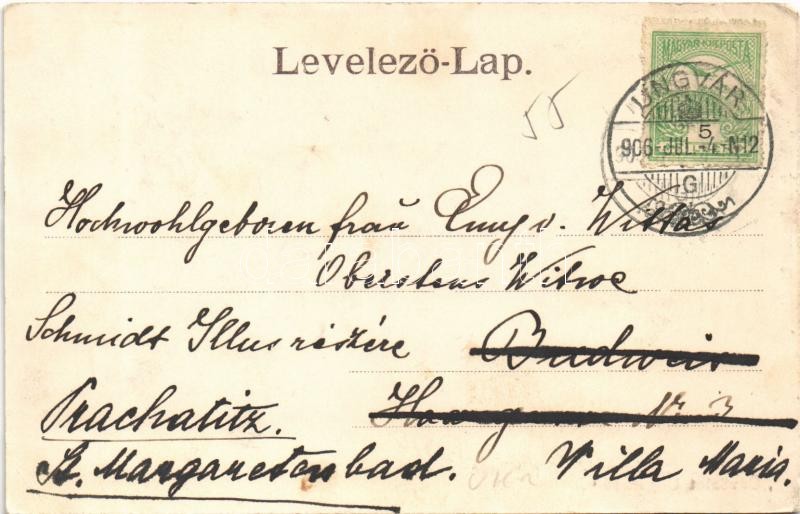 Levelező-Lap.
MAGYAR KIR. POSTA
55
UNGVÁR
5
906 JUL. -4. N12
G
Hochwohlgeboren frau Emy v. Wittas
Oberstens Witwe
Schmidt Illus részére Budweis
Prachatitz. Nr. 3
St. Margaretenbad. Villa Maria.